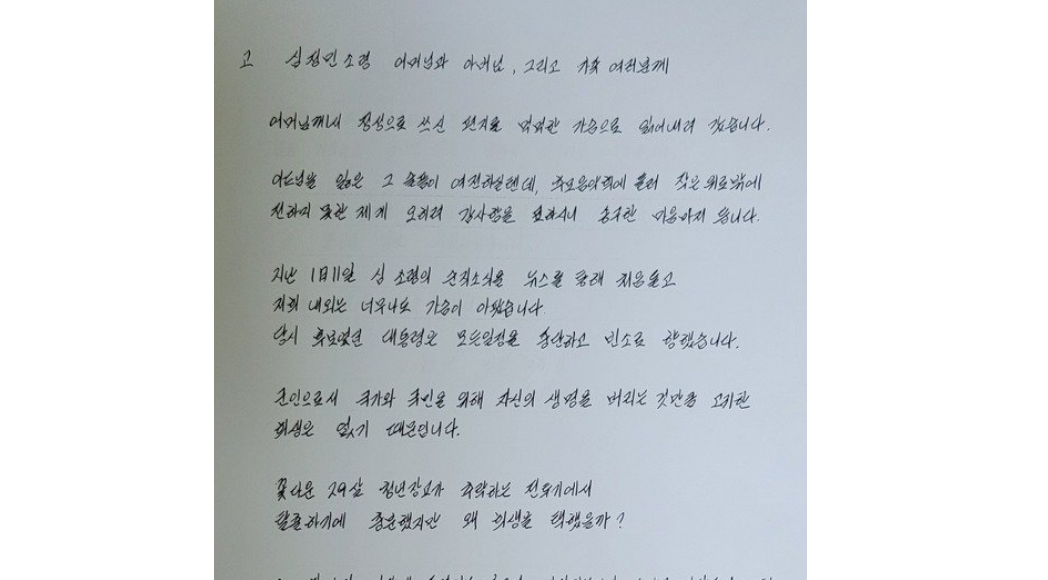 고 심정민소령 어머님과 아버님, 그리고 가족 여러분께
어머님께서 정성으로 쓰신 편지를 먹먹한 가슴으로 읽어내려 갔습니다.
아드님을 잃은 그 슬픔이 여전하실텐데, 추모음악회에 들러 작은 위로밖에
전하지 못한 제게 오히려 감사함을 표하시니 송구한 마음마저 듭니다.
지난 1월11일 심 소령의 순직소식을 뉴스를 통해 처음듣고
저희 내외는 너무나도 가슴이 아팠습니다.
당시 후보였던 대통령은 모든일정을 중단하고 빈소로 향했습니다.
군인으로서 국가와 국민을 위해 자신의 생명을 버리는 것만큼 고귀한
희생은 없기 때문입니다.
꽃다운 29살 청년장교가 추락하는 전투기에서
탈출하기에 충분했지만 왜 희생을 택했을까?